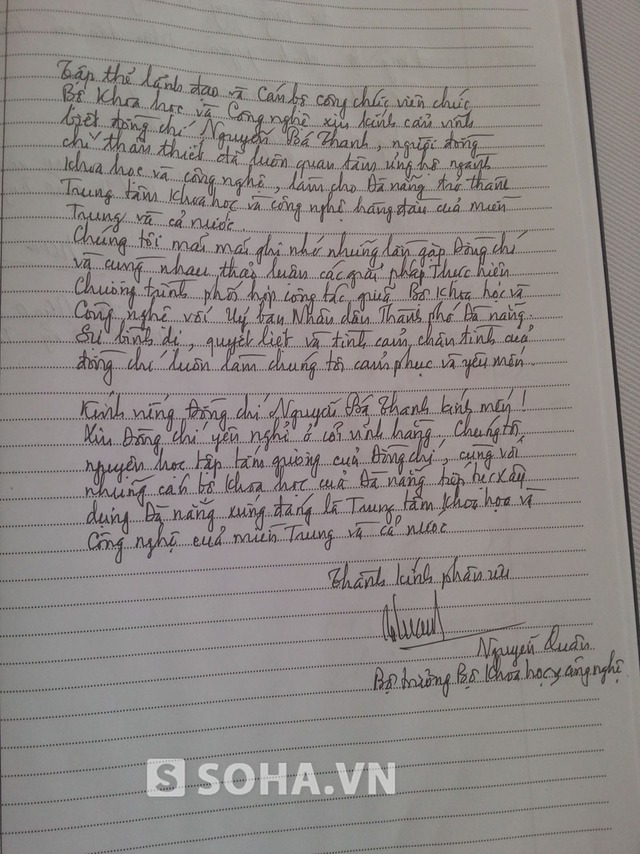 Tập thể lãnh đạo và Cán bộ công chức viên chức
Bộ Khoa học và Công nghệ xin kính cẩn vĩnh
biệt đồng chí Nguyễn Bá Thanh, người đồng
chí thân thiết đã luôn quan tâm ủng hộ ngành
Khoa học và công nghệ, làm cho Đà nẵng trở thành
Trung tâm Khoa học và công nghệ hàng đầu của miền
Trung và cả nước.
Chúng tôi mãi mãi ghi nhớ những lần gặp Đồng chí
và cùng nhau thảo luận các giải pháp Thực hiện
Chương trình phối hợp công tác giữa Bộ Khoa học và
Công nghệ với Uỷ ban Nhân dân Thành phố Đà nẵng.
Sự bình dị, quyết liệt và tình cảm chân tình của
đồng chí luôn làm chúng tôi cảm phục và yêu mến.
Kính viếng Đồng chí Nguyễn Bá Thanh kính mến!
Xin Đồng chí yên nghỉ ở cõi vĩnh hằng. Chúng tôi
nguyện học tập tấm gương của Đồng chí, cùng với
những cán bộ khoa học của Đà nẵng tiếp tục xây
dựng Đà nẵng xứng đáng là Trung tâm Khoa học và
Công nghệ của miền Trung và cả nước
Thành kính phân ưu
Nguyễn Quân
Bộ trưởng Bộ Khoa học và công nghệ
S SOHA.VN